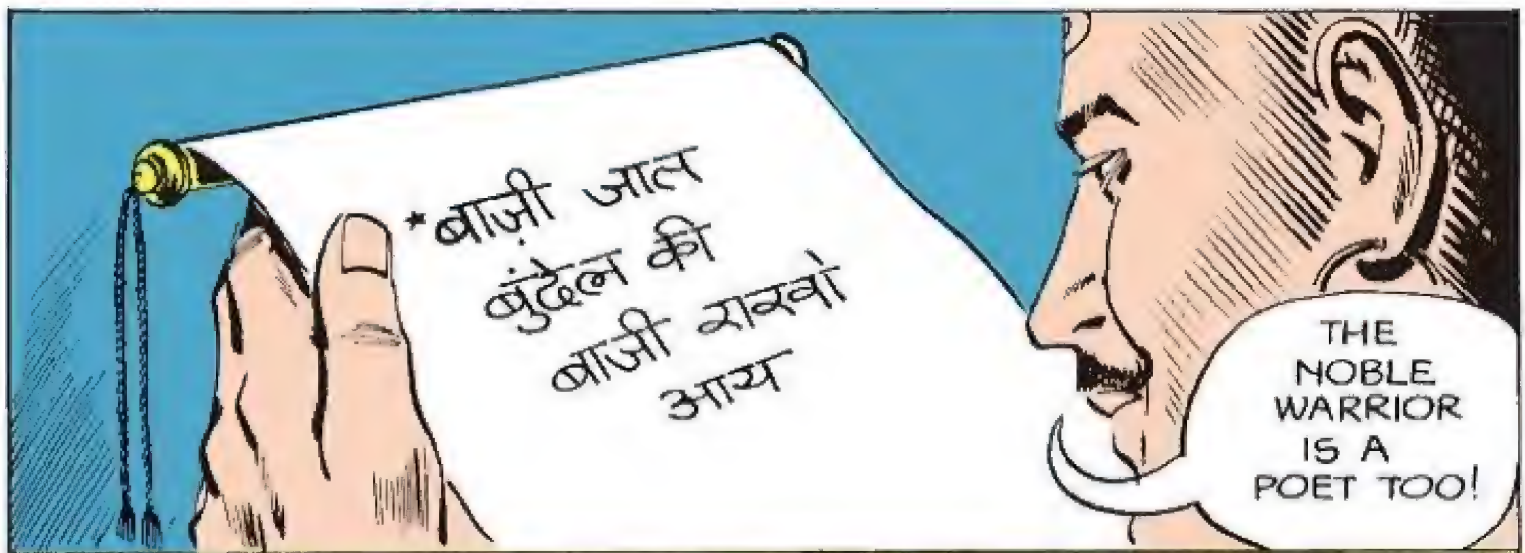 *बाज़ी जात
बुंदेल की
बाजी राखो
आय
THE
NOBLE
WARRIOR
IS A
POET TOO!